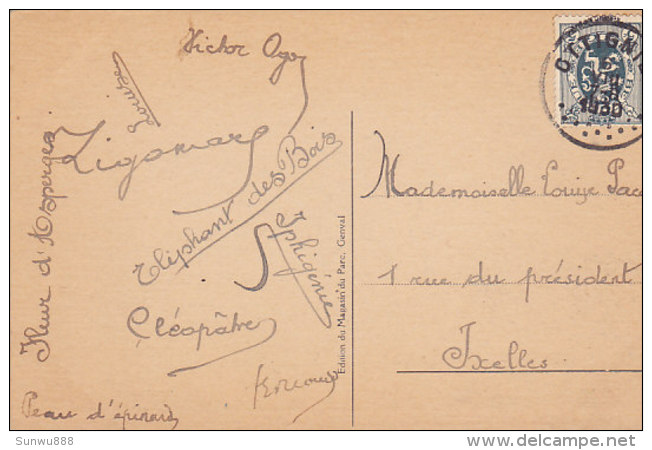 Victor Ogo
Louise
Zigomar
Fleur d'Asperges
Eliphant des Bois
Iphigénie
Cléopâtre
Peau d'épinard
Edition du Magasin du Parc, Genval
OTTIGNI
1930
Mademoiselle Louise Pac
1 rue du président
Ixelles
Sunwu888
delcampe.net